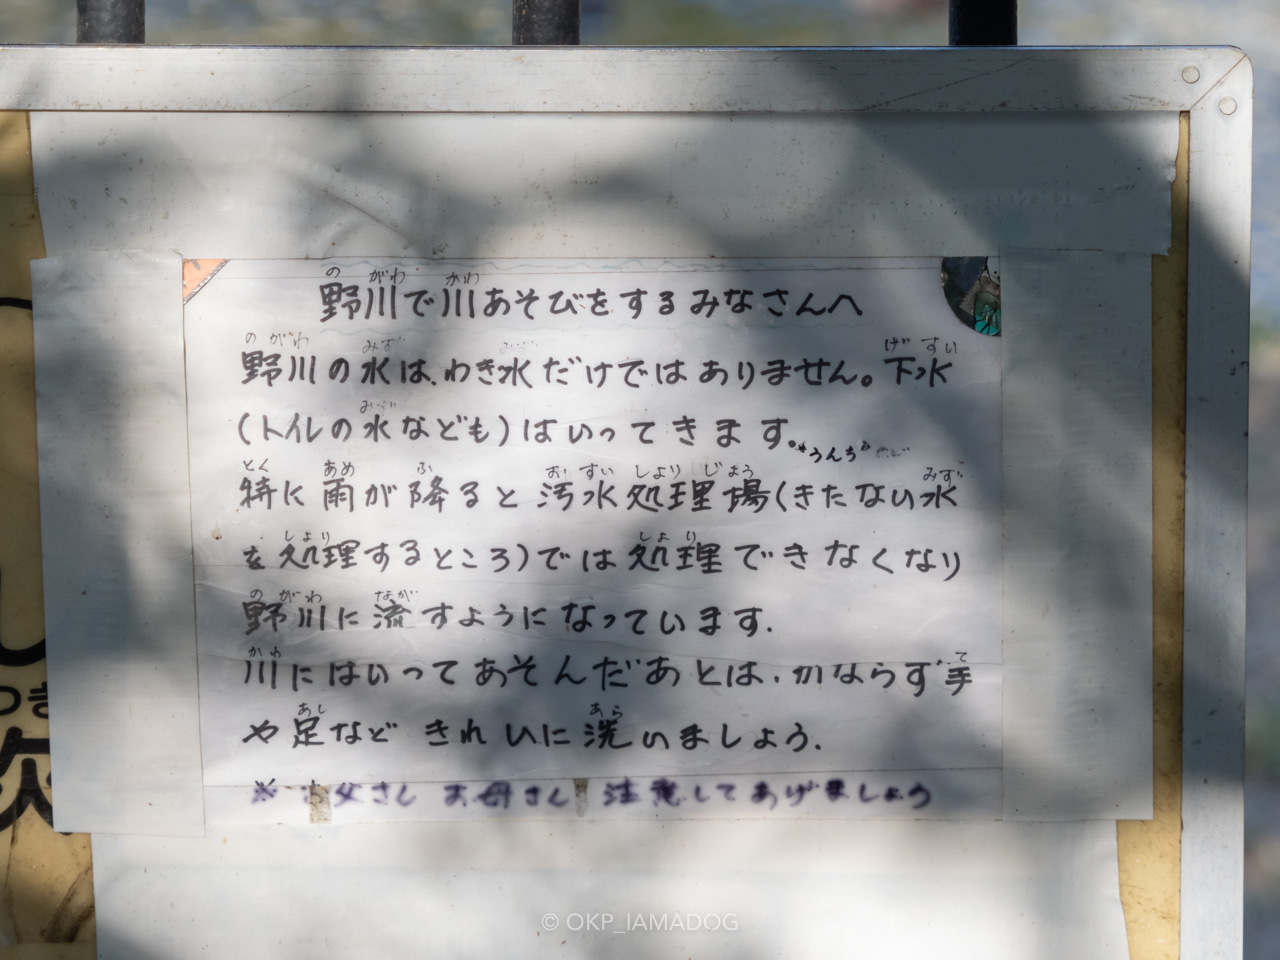 野川で川あそびをするみなさんへ
野川の水は、わき水だけではありません。下水
(トイレの水なども)はいってきます。
*うんち
特に雨が降ると汚水処理場(きたない水
を処理するところ)では処理できなくなり
野川に流すようになっています.
川にはいってあそんだあとは.かならず手
や足などきれいに洗いましょう.
※ お父さん お母さん 注意してあげましょう
© OKP_IAMADOG